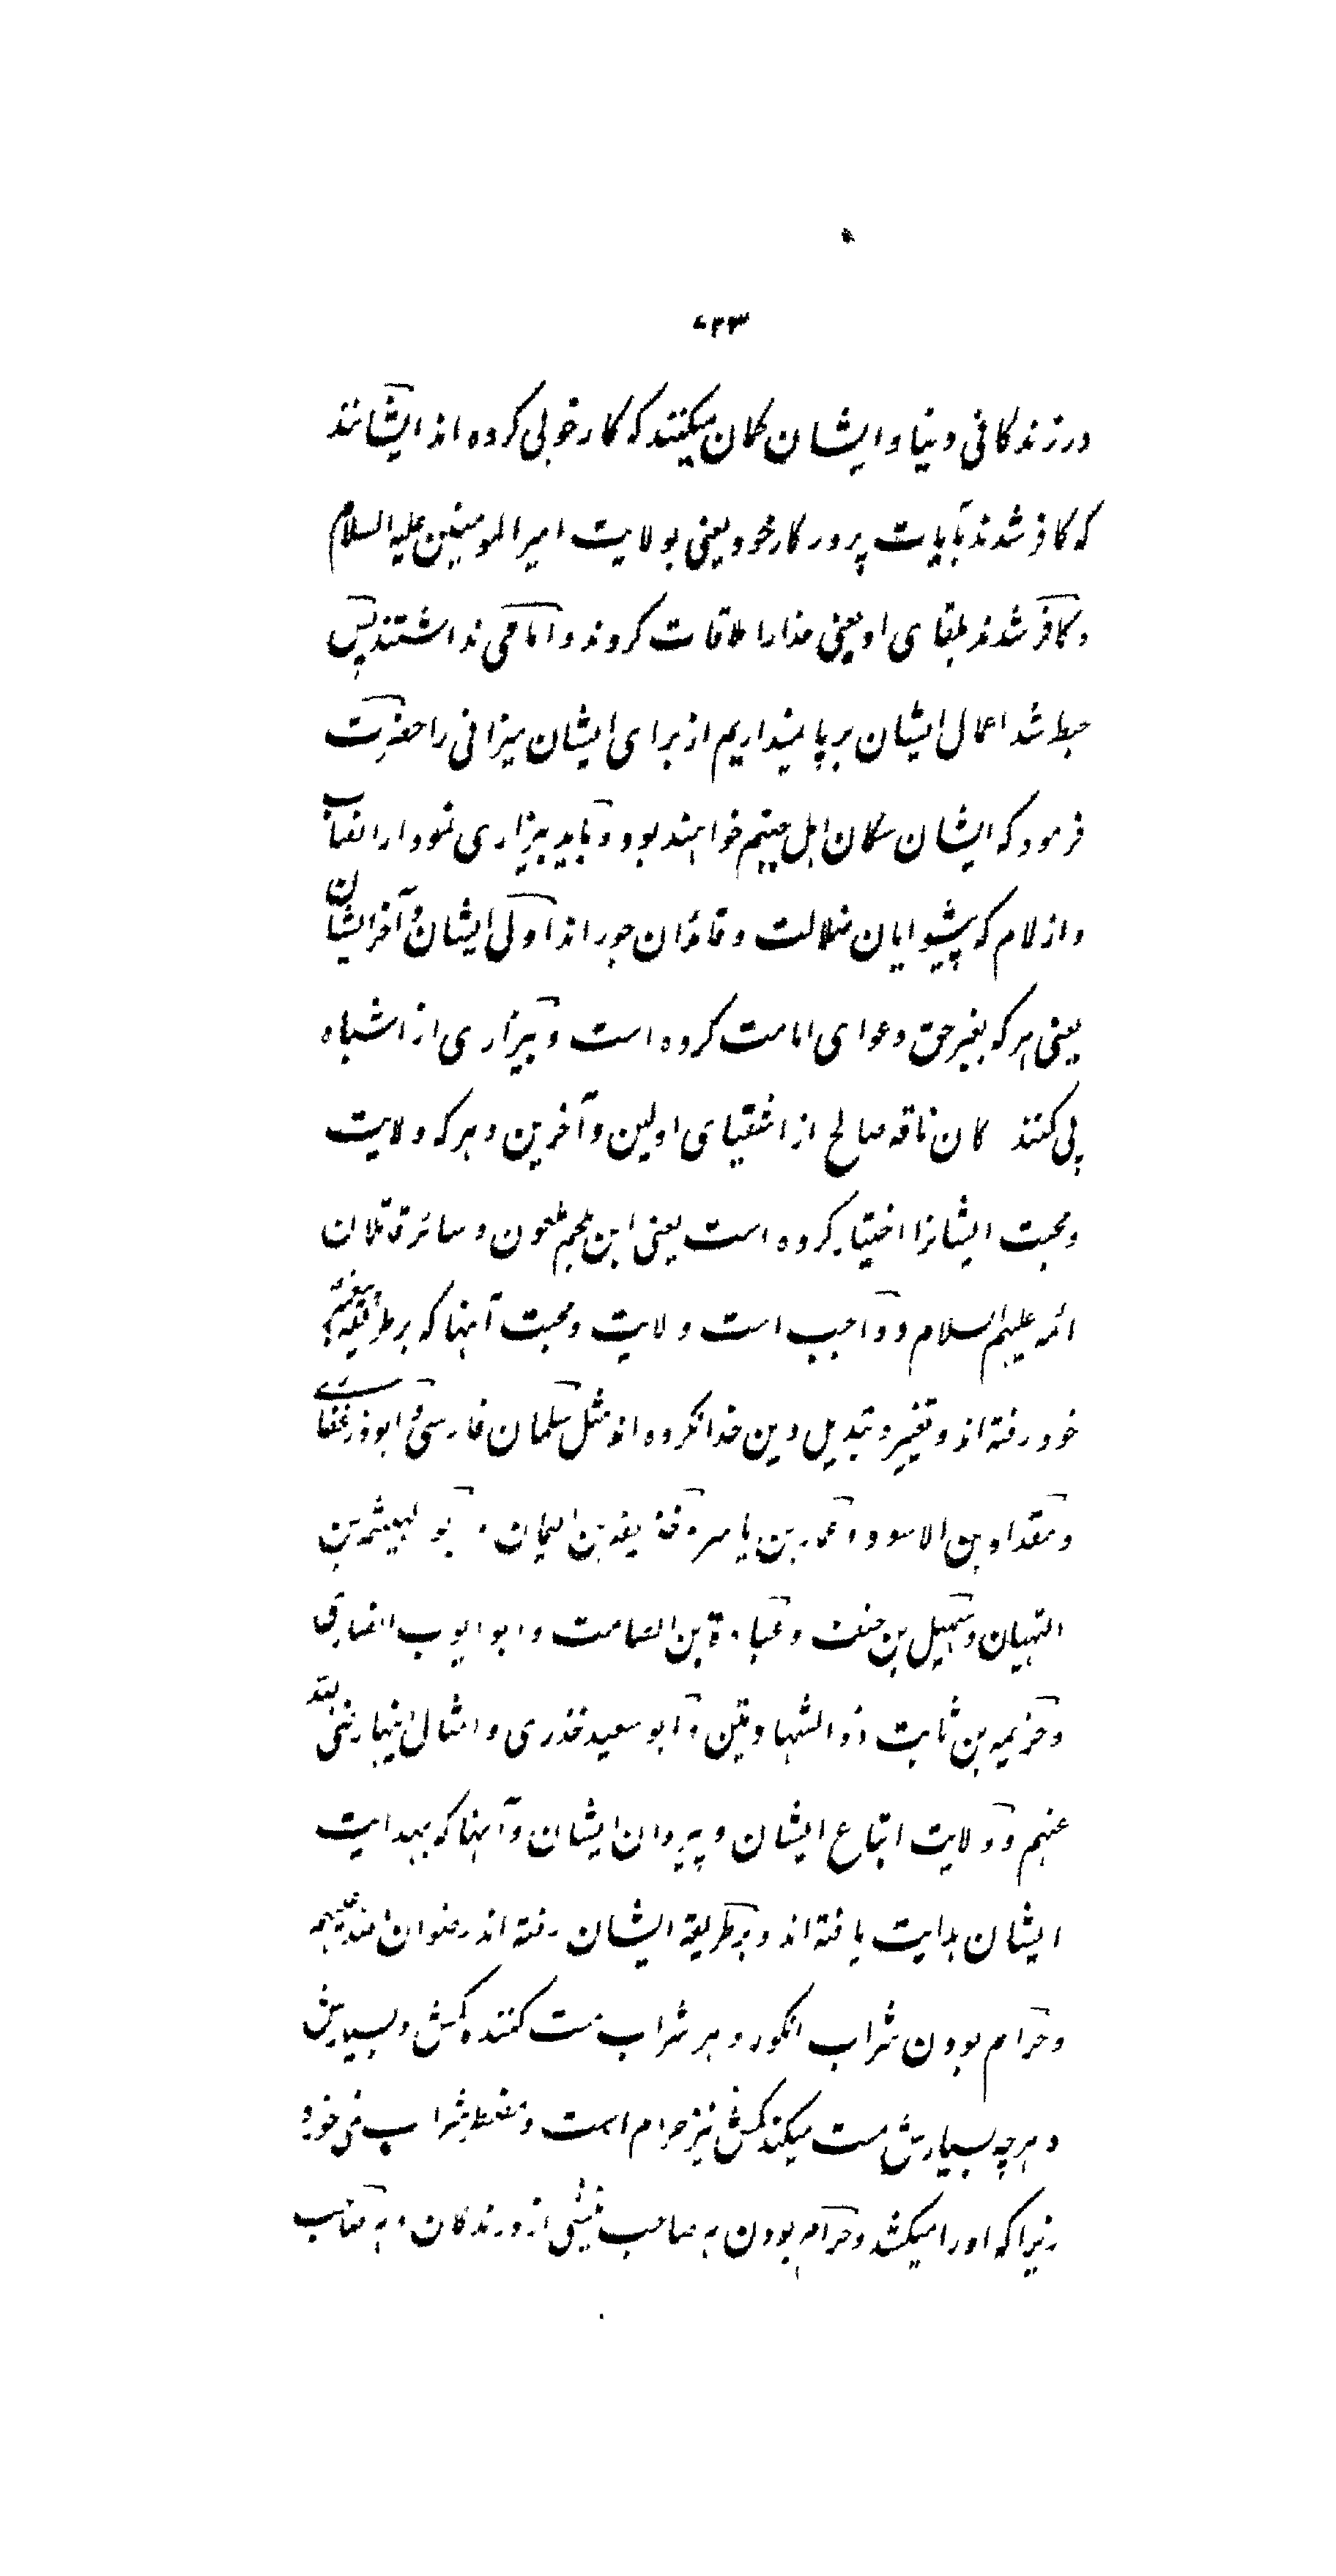 ۶۲۳
در زندگانی دنیا و ایشان گمان میکنند که کار خوبی کرده اند ایشانند
که کافر شدند بآیات پروردگار خود یعنی بولایت امیر المومنین علیه السلام
و کافر شدند بلقای او یعنی خدا را ملاقات کردند و امامی نداشتند پس
حبط شد اعمال ایشان بر پا نمیداریم از برای ایشان میزانی را حضرت
فرمود که ایشان سگان اهل جهنم خواهند بود و باید بیزاری نمود از انصاب
و ازلام که پیشوایان ضلالت و قائدان جور اند اولی ایشان و آخر ایشان
یعنی هر که بغیر حق دعوای امامت کرده است و بیزاری از اشباه
پی کنند گان ناقه صالح از اشقیای اولین و آخرین و هر که ولایت
و محبت ایشانرا اختیار کرده است یعنی ابن ملجم ملعون و سائر قاتلان
ائمه علیهم السلام و واجب است ولایت و محبت آنها که بر طریقه پیغمبر
خود رفته اند و تغییر و تبدیل دین خدا نکرده اند مثل سلمان فارسی و ابوذر غفاری
و مقداد بن الاسود و عمار بن یاسر و حذیفه بن الیمان و ابو الهیثم بن
التیهان و سهیل بن حنیف و عبادة بن الصامت و ابو ایوب انصاری
و خزیمه بن ثابت ذو الشهادتین و ابو سعید خدری و امثال اینها رضی الله
عنهم و ولایت اتباع ایشان و پیروان ایشان و آنها که بهدایت
ایشان هدایت یافته اند و بر طریقه ایشان رفته اند رضوان الله علیهم
و حرام بودن شراب انگور و هر شراب مست کننده کمش و بسیارش
و هر چه بسیارش مست میکند کمش نیز حرام است و مضطر شراب نمی خورد
زیرا که او را میکشد و حرام بودن هر صاحب نیشی از درندگان و هر صاحب